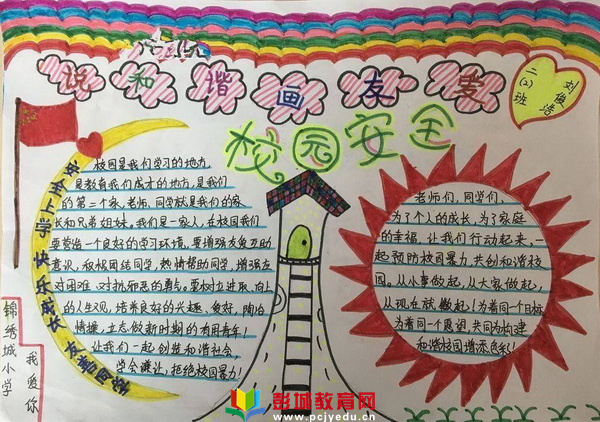 说和谐画友爱
二(2)班
刘俊浩
校园安全
安全上学 快乐成长 友善同学
校园是我们学习的地方,
是教育我们成才的地方,是我们
的第二个家,老师、同学就是我们的家
长和兄弟姐妹,我们是一家人,在校园我们
要营造一个良好的学习环境,要增强友爱互助
意识,积极团结同学,热情帮助同学,增强应
对困难、对抗邪恶的勇气,要树立进取、向上
的人生观,培养良好的兴趣、爱好,陶冶
情操,立志做新时期的有用青年!
让我们一起创造和谐社会,
学会谦让,拒绝校园暴力!
老师们,同学们,
为了个人的成长,为了家庭
的幸福,让我们行动起来,一
起预防校园暴力,共创和谐校
园。从小事做起,从大家做起,
从现在就做起!为着同一个目标
为着同一个愿望,共同为构建
和谐校园增添色彩!
锦绣城小学
我爱你
彭城教育网
www.pcjyedu.cn